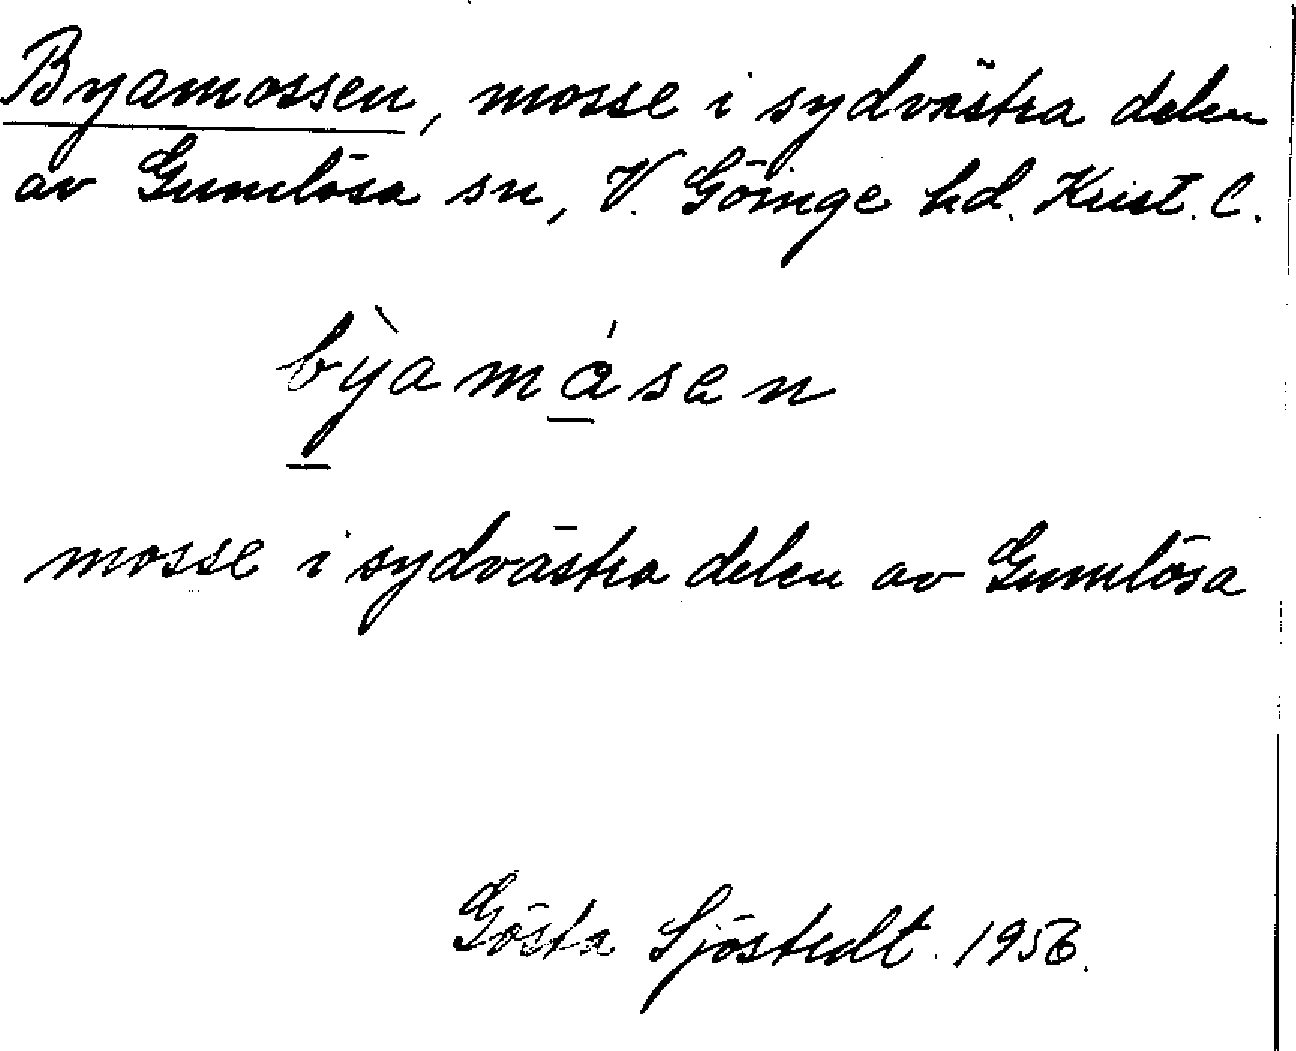 Byamossen, mosse i sydvästra delen
av Gumlösa sn, V. Göinge hd. Krist. l.
bỳamåsen
mosse i sydvästra delen av Gumlösa
Gösta Sjöstedt. 1956.